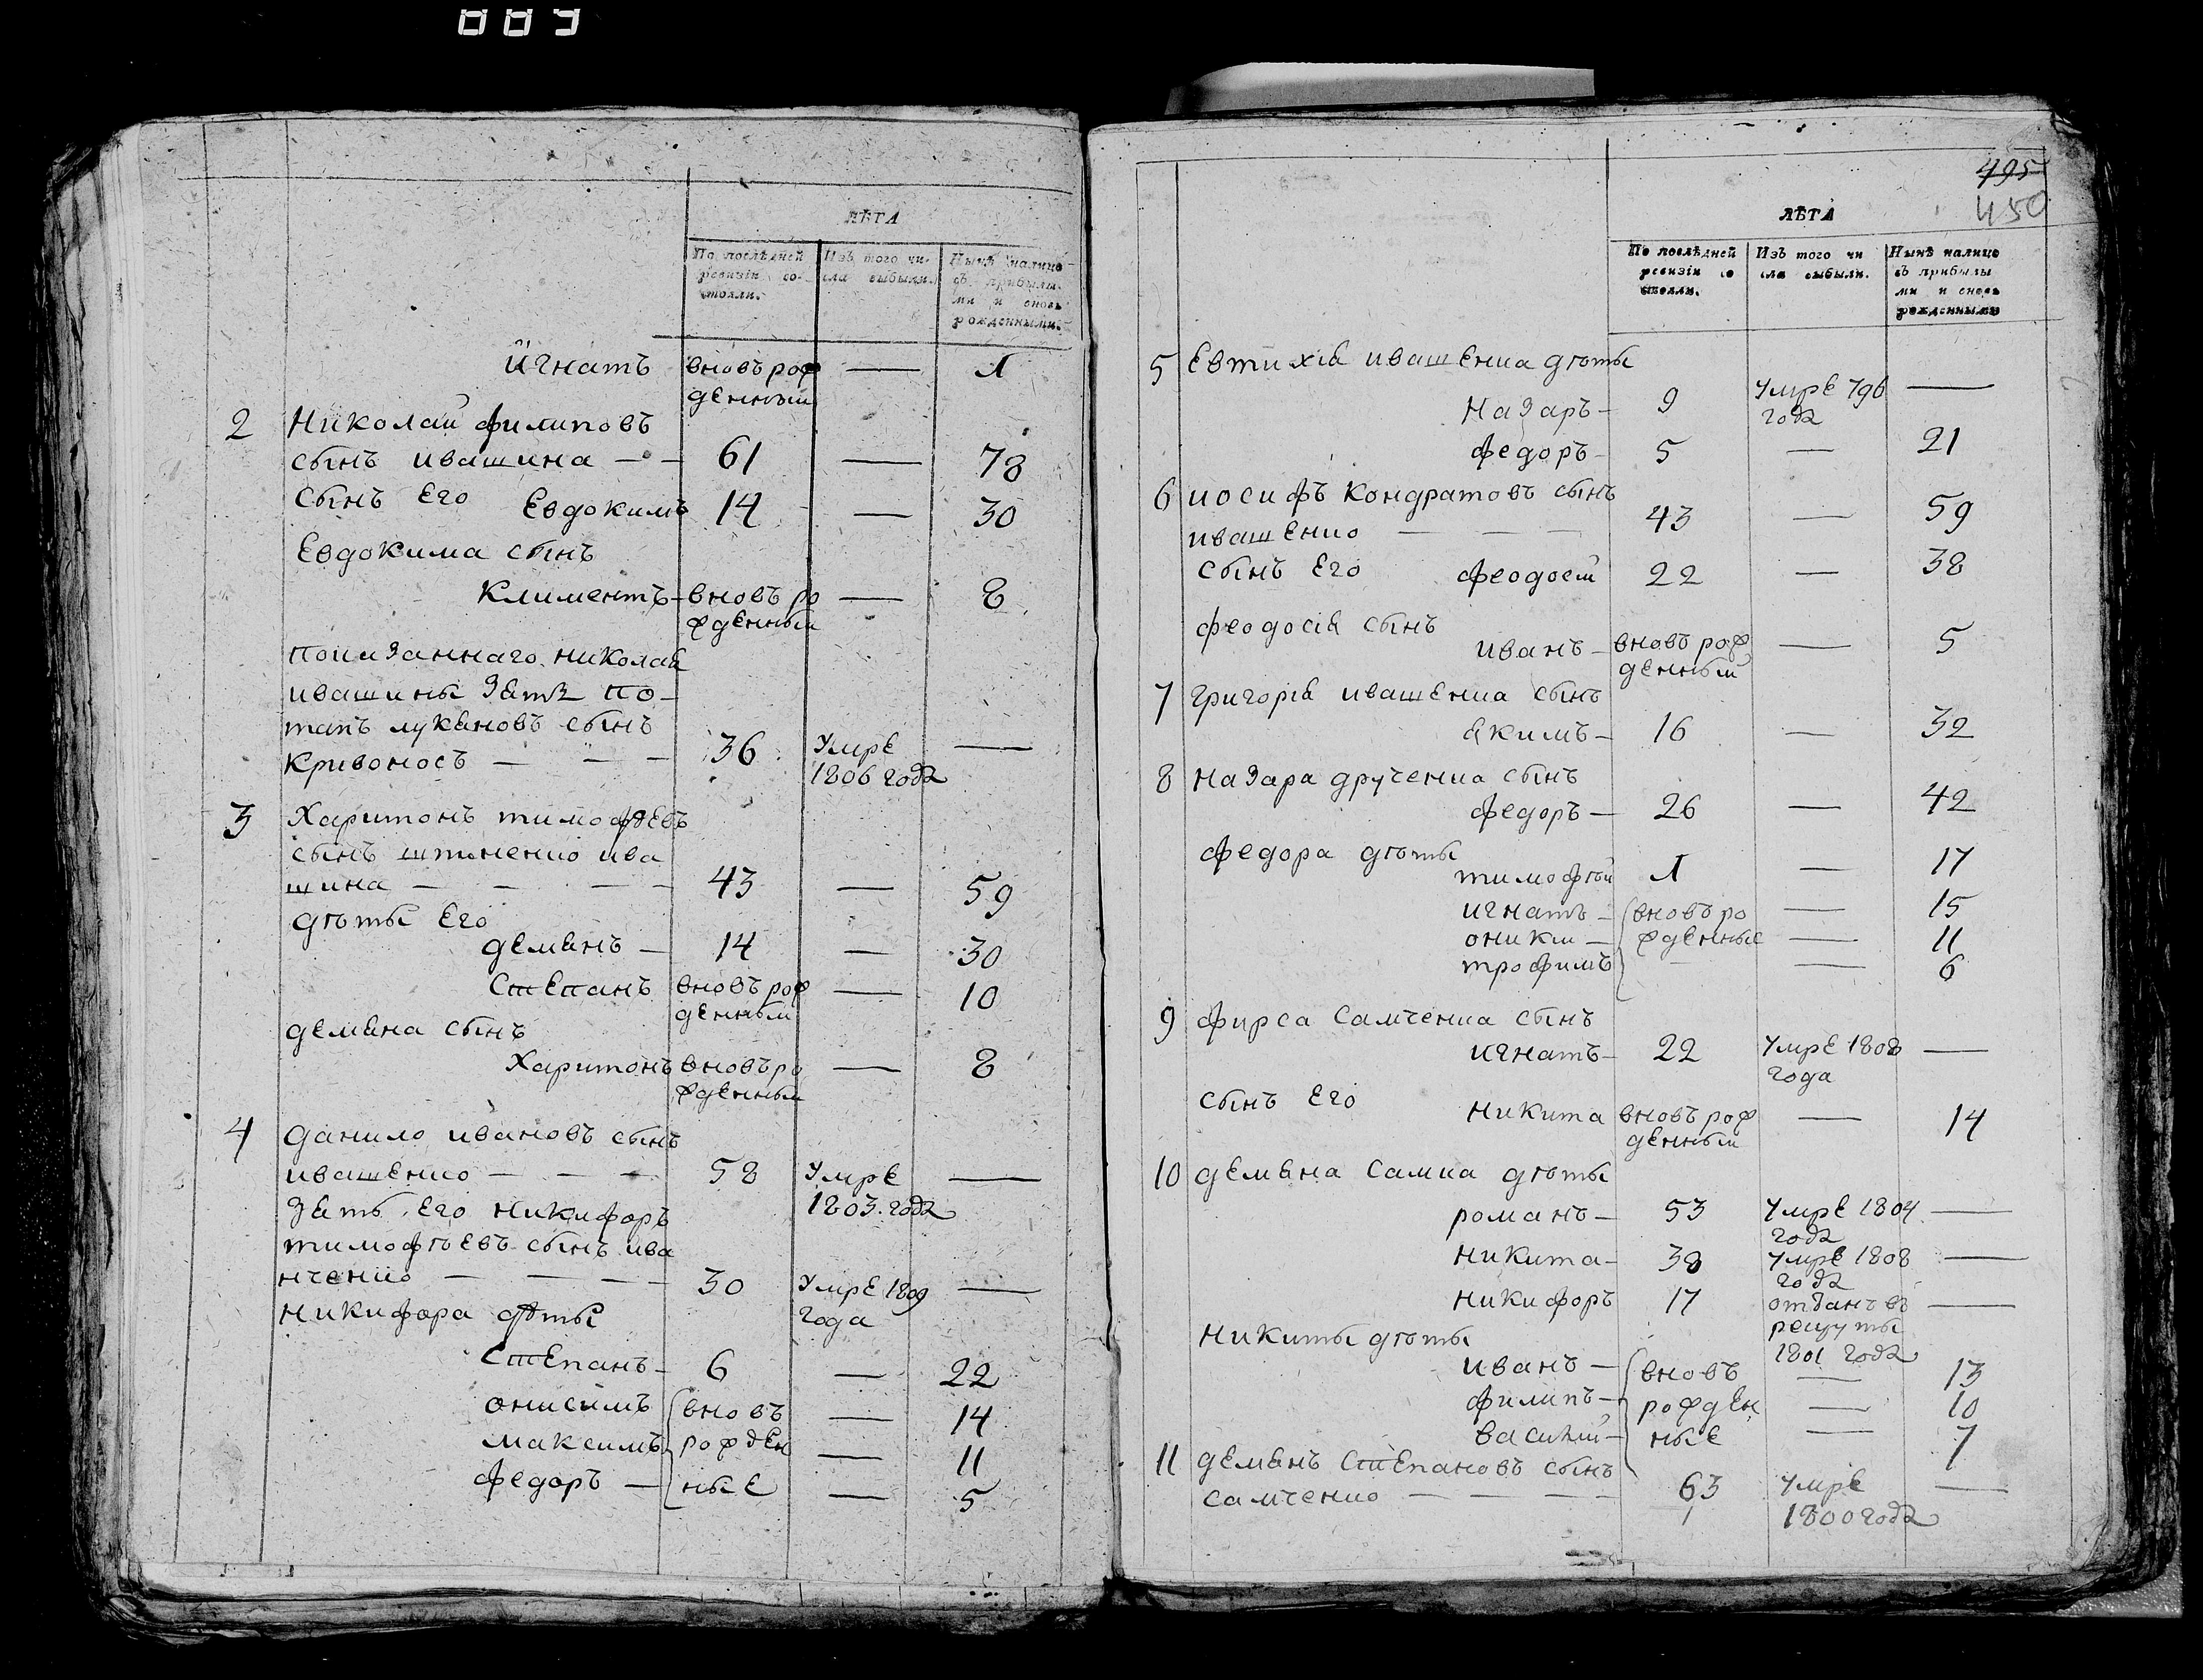 003
ЛѢТА
По послѣдней ревизіи состояли.
Изъ того числа выбыли.
Нынѣ налицо съ прибылыми и вновь рожденными.
Игнатъ вновь рож — 1
денный
2 Николай филиповъ
сынъ ивашина — — 61 — 78
сынъ Его Евдокимъ 14 — 30
Евдокима сынъ
Климентъ — вновъ ро — 8
жденный
показаннаго николая
ивашины зять по-
тапъ лукяновъ сынъ
Кривоносъ — — — 36 Умре —
1806 года
3 Харитонъ тимофѣевъ
сынъ ива
шина — — — — 43 — 59
дѣты Его
демянъ — 14 — 30
Степанъ вновъ рож — 10
денный
демяна сынъ
Харитонъ вновъ ро — 8
жденный
4 данило ивановъ сынъ
ивашенко — — — 58 Умре —
1803 года
Зять Его Никифоръ
тимофѣевъ сынъ ива
нченко — — — — 30 Умре 1809 —
года
Никифора дѣты
Степанъ — 6 — 22
онисимъ вновъ — 14
максимъ рожден — 11
федоръ — ные — 5
495
450
ЛѢТА
По послѣдней ревизіи состояли.
Изъ того числа выбыли.
Нынѣ налицо съ прибылыми и вновь рожденными
5 Евтихія ивашенка дѣты
Назаръ — 9 Умре 796 —
года
федоръ — 5 — 21
6 иосифъ Кондратовъ сынъ
ивашенко — — — 43 — 59
сынъ Его феодосій 22 — 38
феодосія сынъ
иванъ — вновъ рож — 5
денный
7 григорія ивашенка сынъ
якимъ — 16 — 32
8 назара друченка сынъ
федоръ — 26 — 42
федора дѣты
тимофѣй 1 — 17
игнатъ — вновъ ро — 15
оникій — жденные — 11
трофимъ — 6
9 фирса Самченка сынъ
игнатъ — 22 Умре 1808 —
года
сынъ Его Никита вновъ рож — 14
денный
10 демяна Самка дѣты
романъ — 53 Умре 1804 —
года
Никита — 38 Умре 1808 —
года
Никифоръ 17 отданъ въ —
рекруты
1801 года
Никиты дѣты
иванъ — вновъ — 13
филипъ — рожден — 10
василій — ные — 7
11 демянъ Степановъ сынъ
самченко — — — 63 Умре —
1800 года